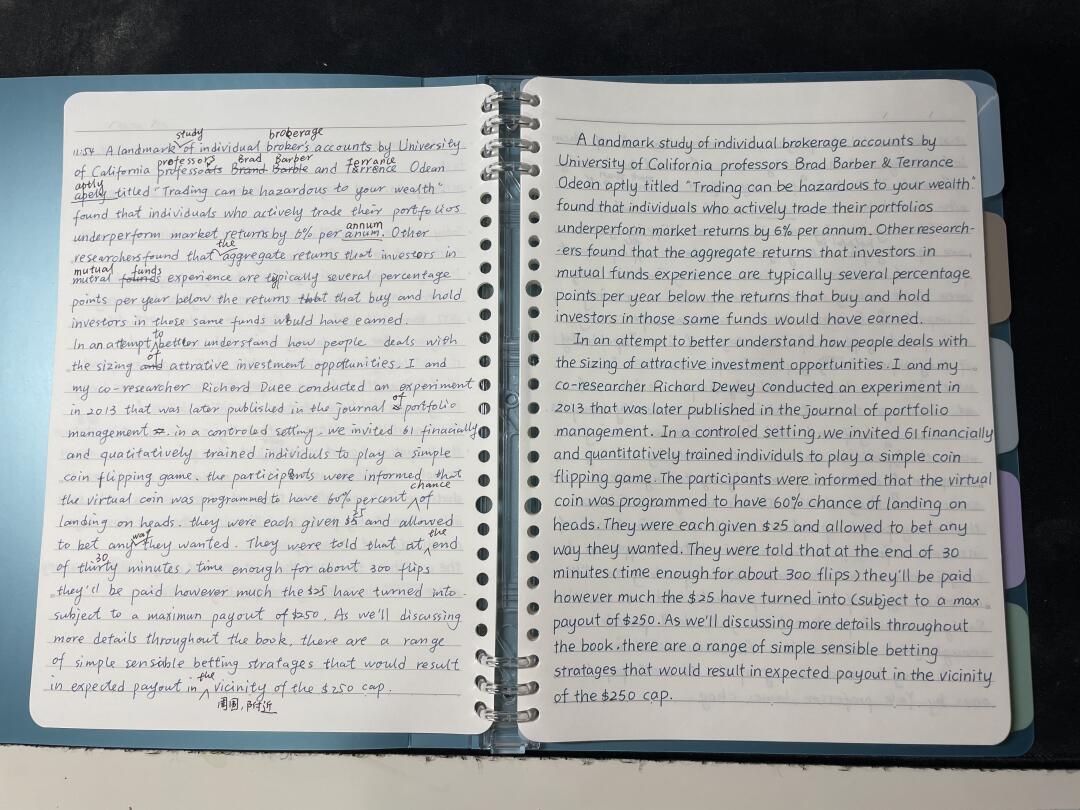 study brokerage
11:54 A landmark of individual broker's accounts by University
professors Brad Barber Terrance
of California Brand Barble and Terrance Odean
aptly
apely titled "Trading can be hazardous to your wealth"
found that individuals who actively trade their portfolios
annum
underperform market returns by 6% per anum. Other
the
researchers found that aggregate returns that investors in
mutual funds
mutral founds experience are typically several percentage
points per year below the returns that that buy and hold
investors in those same funds would have earned.
to
In an attempt better understand how people deals with
of
the sizing and attrative investment opptunities, I and
my co-researcher Richerd Duee conducted an experiment
of
in 2013 that was later published in the journal portfolio
management in a controled setting, we invited 61 finacially
and quatitatively trained individuals to play a simple
coin flipping game. the participants were informed that
chance
the virtual coin was programmed to have 60% percent of
25
landing on heads. they were each given $ and allowed
way the
to bet any they wanted. They were told that at end
30
of thirty minutes, time enough for about 300 flips
they'll be paid however much the $25 have turned into.
subject to a maximun payout of $250. As we'll discussing
more details throughout the book, there are a range
of simple sensible betting stratages that would result
the
in expected payout in vicinity of the $250 cap.
周围,附近
A landmark study of individual brokerage accounts by
University of California professors Brad Barber & Terrance
Odean aptly titled "Trading can be hazardous to your wealth."
found that individuals who actively trade their portfolios
underperform market returns by 6% per annum. Other research-
-ers found that the aggregate returns that investors in
mutual funds experience are typically several percentage
points per year below the returns that buy and hold
investors in those same funds would have earned.
In an attempt to better understand how people deals with
the sizing of attractive investment opportunities. I and my
co-researcher Richard Dewey conducted an experiment in
2013 that was later published in the journal of portfolio
management. In a controled setting, we invited 61 financially
and quantitatively trained individuls to play a simple coin
flipping game. The participants were informed that the virtual
coin was programmed to have 60% chance of landing on
heads. They were each given $25 and allowed to bet any
way they wanted. They were told that at the end of 30
minutes (time enough for about 300 flips) they'll be paid
however much the $25 have turned into (subject to a max
payout of $250. As we'll discussing more details throughout
the book, there are a range of simple sensible betting
stratages that would result in expected payout in the vicinity
of the $250 cap.